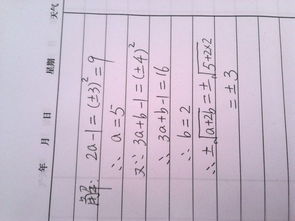 年 月 日 星期 天气
解: 2a-1=(±3)²=9
∴ a=5
又∵ 3a+b-1=(±4)²
∴ 3a+b-1=16
∴ b=2
∴ ±√a+2b=±√5+2×2
=±3